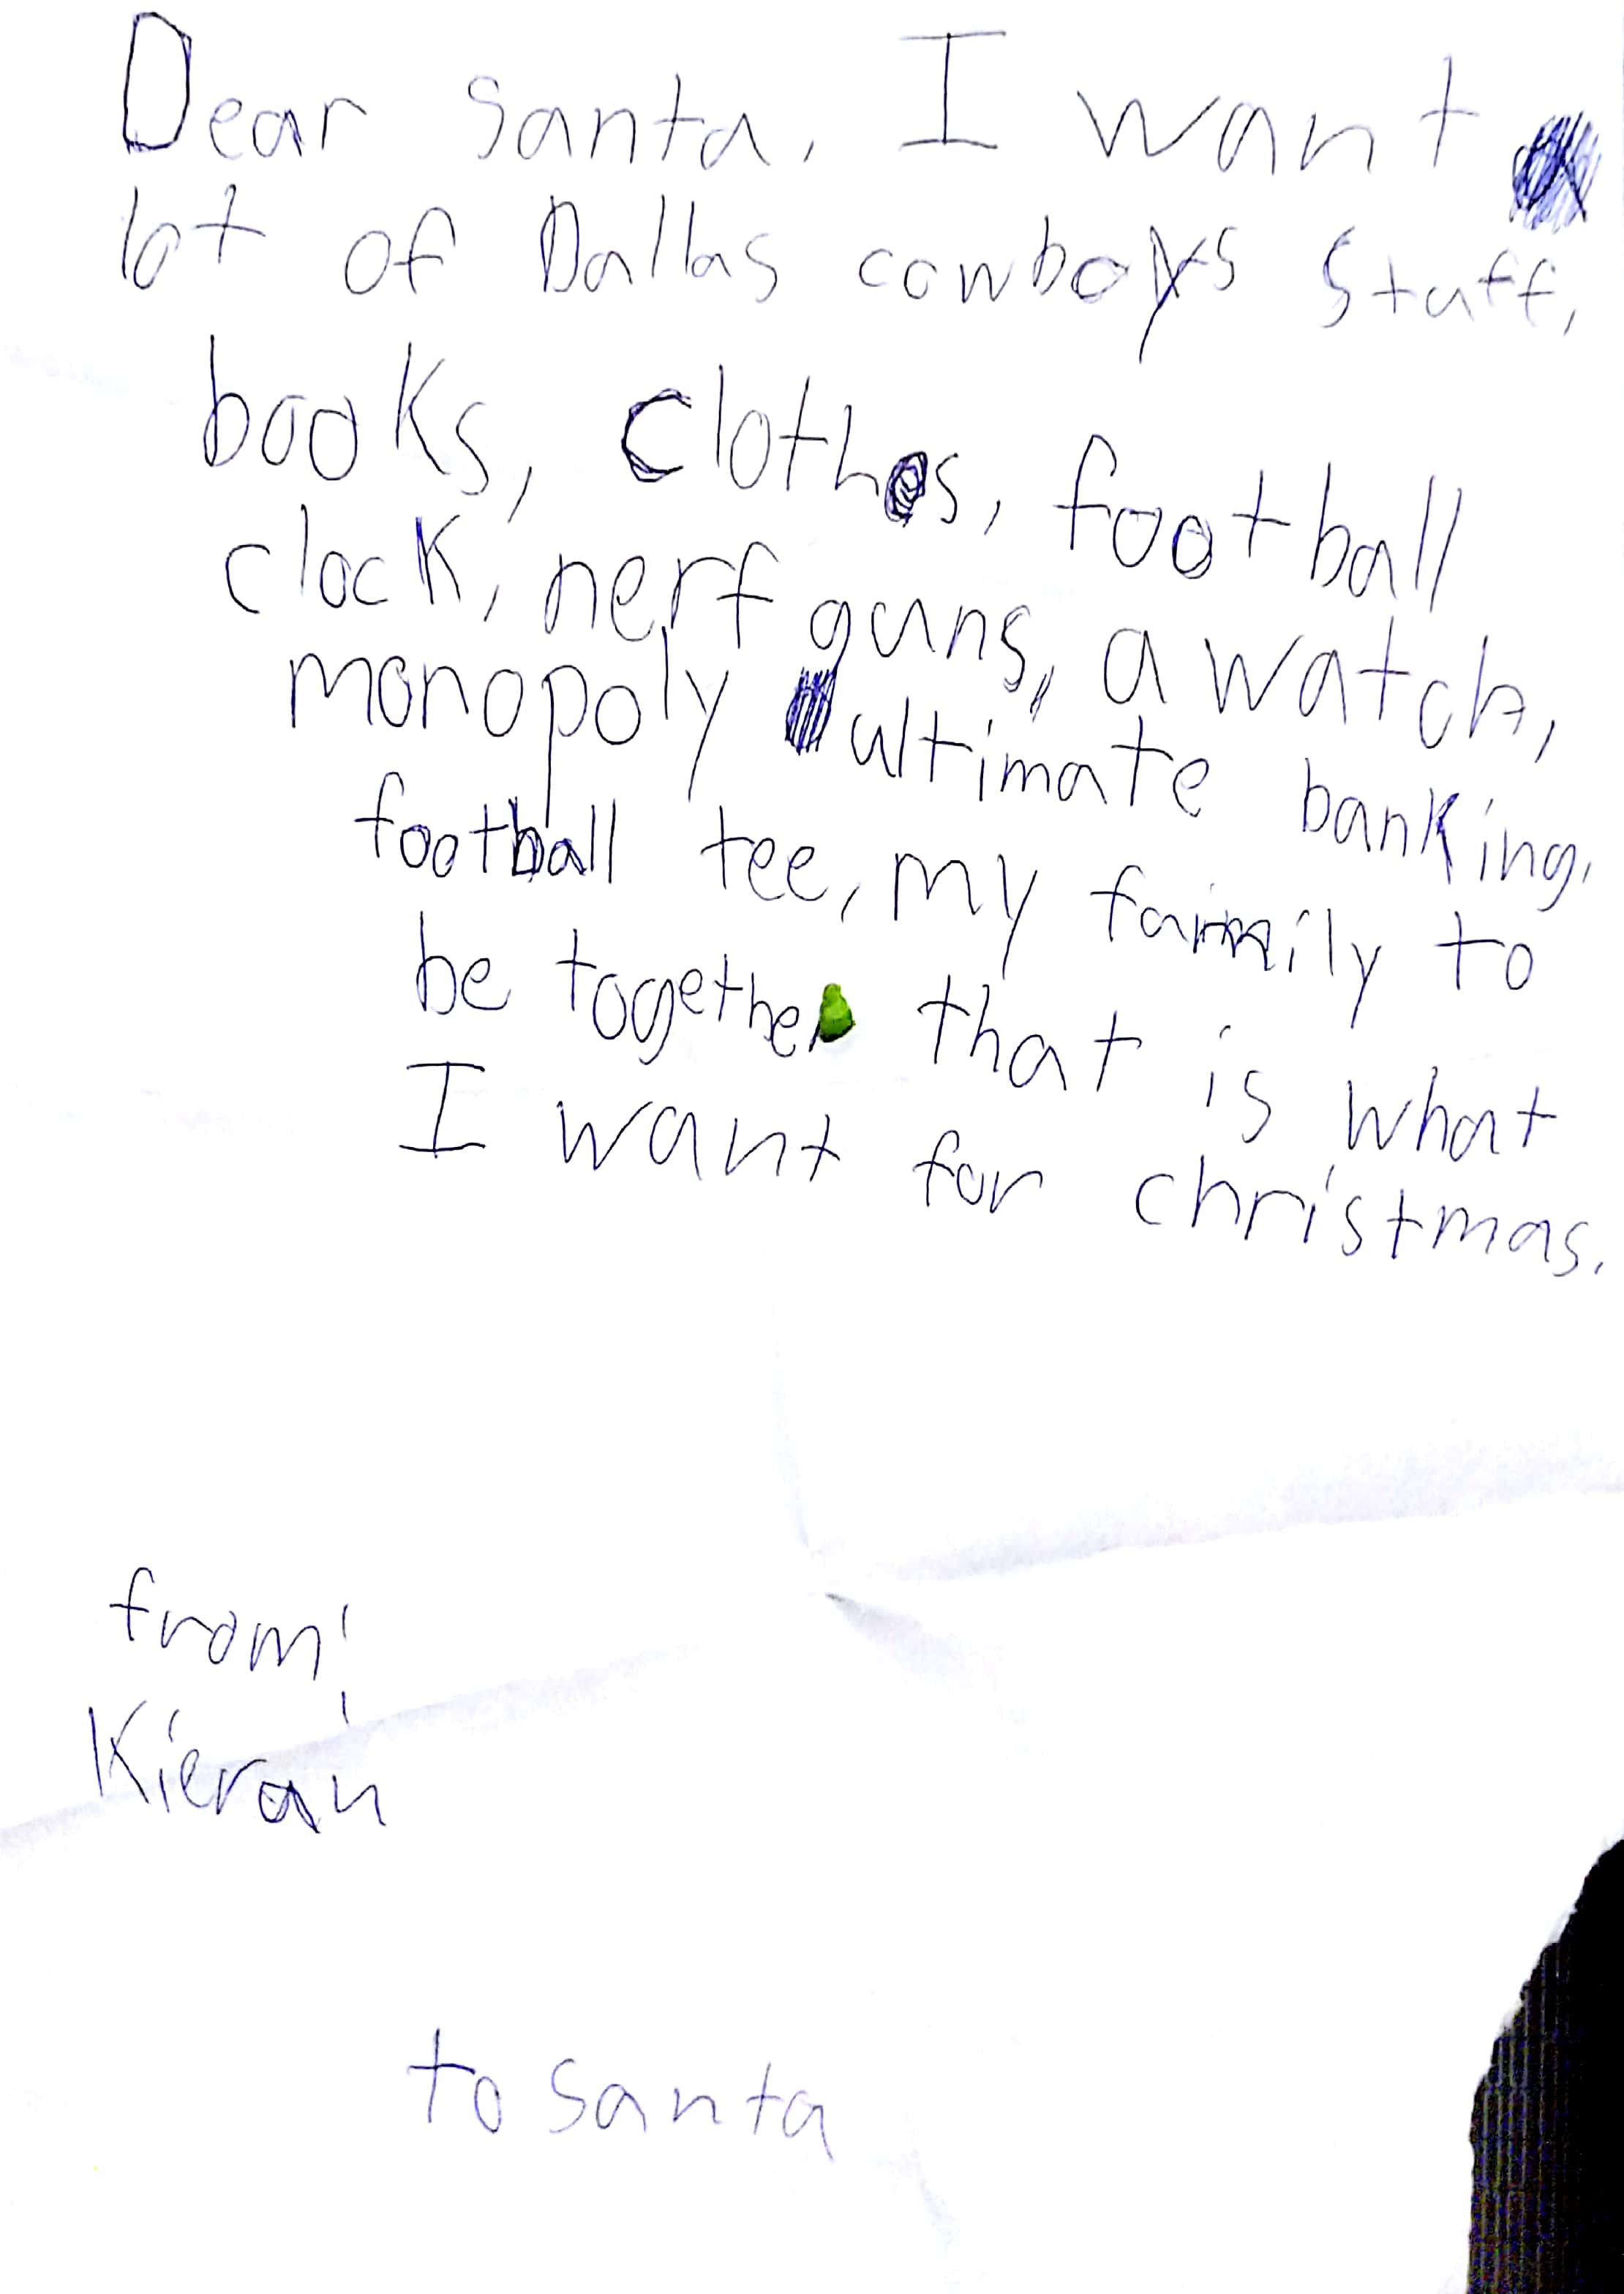 Dear Santa, I want a
lot of Dallas cowboys stuff,
books, clothes, football
clock, nerf guns, a watch,
monopoly ultimate banking,
football tee, my faimily to
be together that is what
I want for christmas.
from:
Kieran
to santa